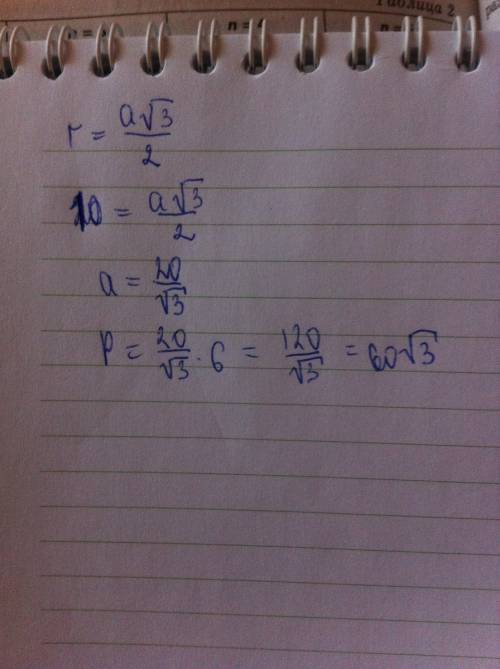 Таблица 2
n = 4
r = a√3/2
10 = a√3/2
a = 20/√3
P = 20/√3 · 6 = 120/√3 = 60√3